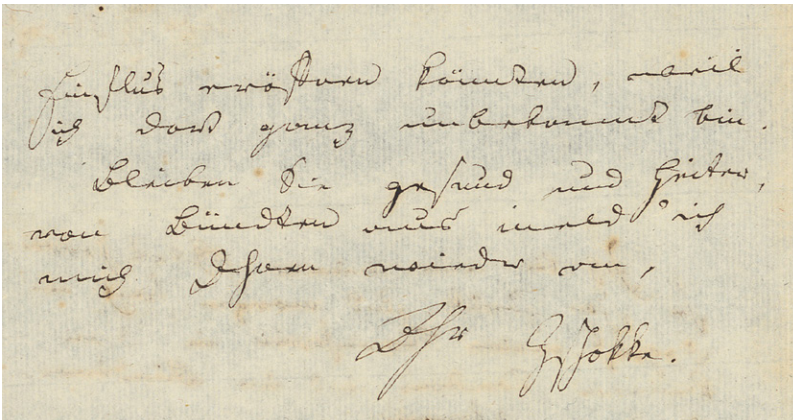 Einfluß eröffnen könnten, weil
ich dort ganz unbekannt bin.
Bleiben Sie gesund und heiter,
von Bündten aus meld' ich
mich Ihnen wieder an,
Ihr Zschokke.